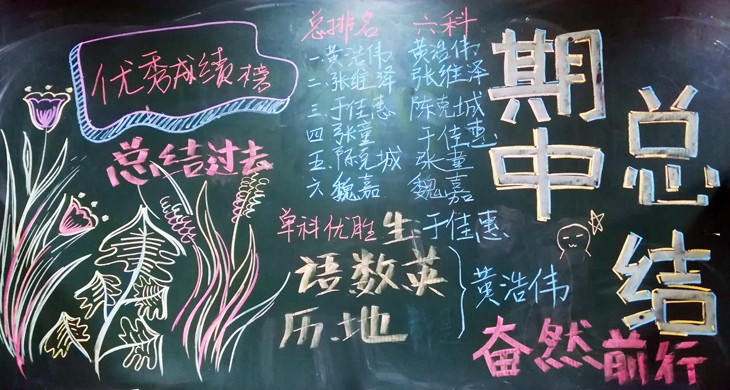 优秀成绩榜
总结过去
总排名 六科
一黄浩伟 黄浩伟
二张维泽 张维泽
三于佳惠 陈克城
四张童 于佳惠
五陈克城 张童
六魏嘉 魏嘉
单科优胜
生:于佳惠
语数英
历地
黄浩伟
期中
总结
奋然前行